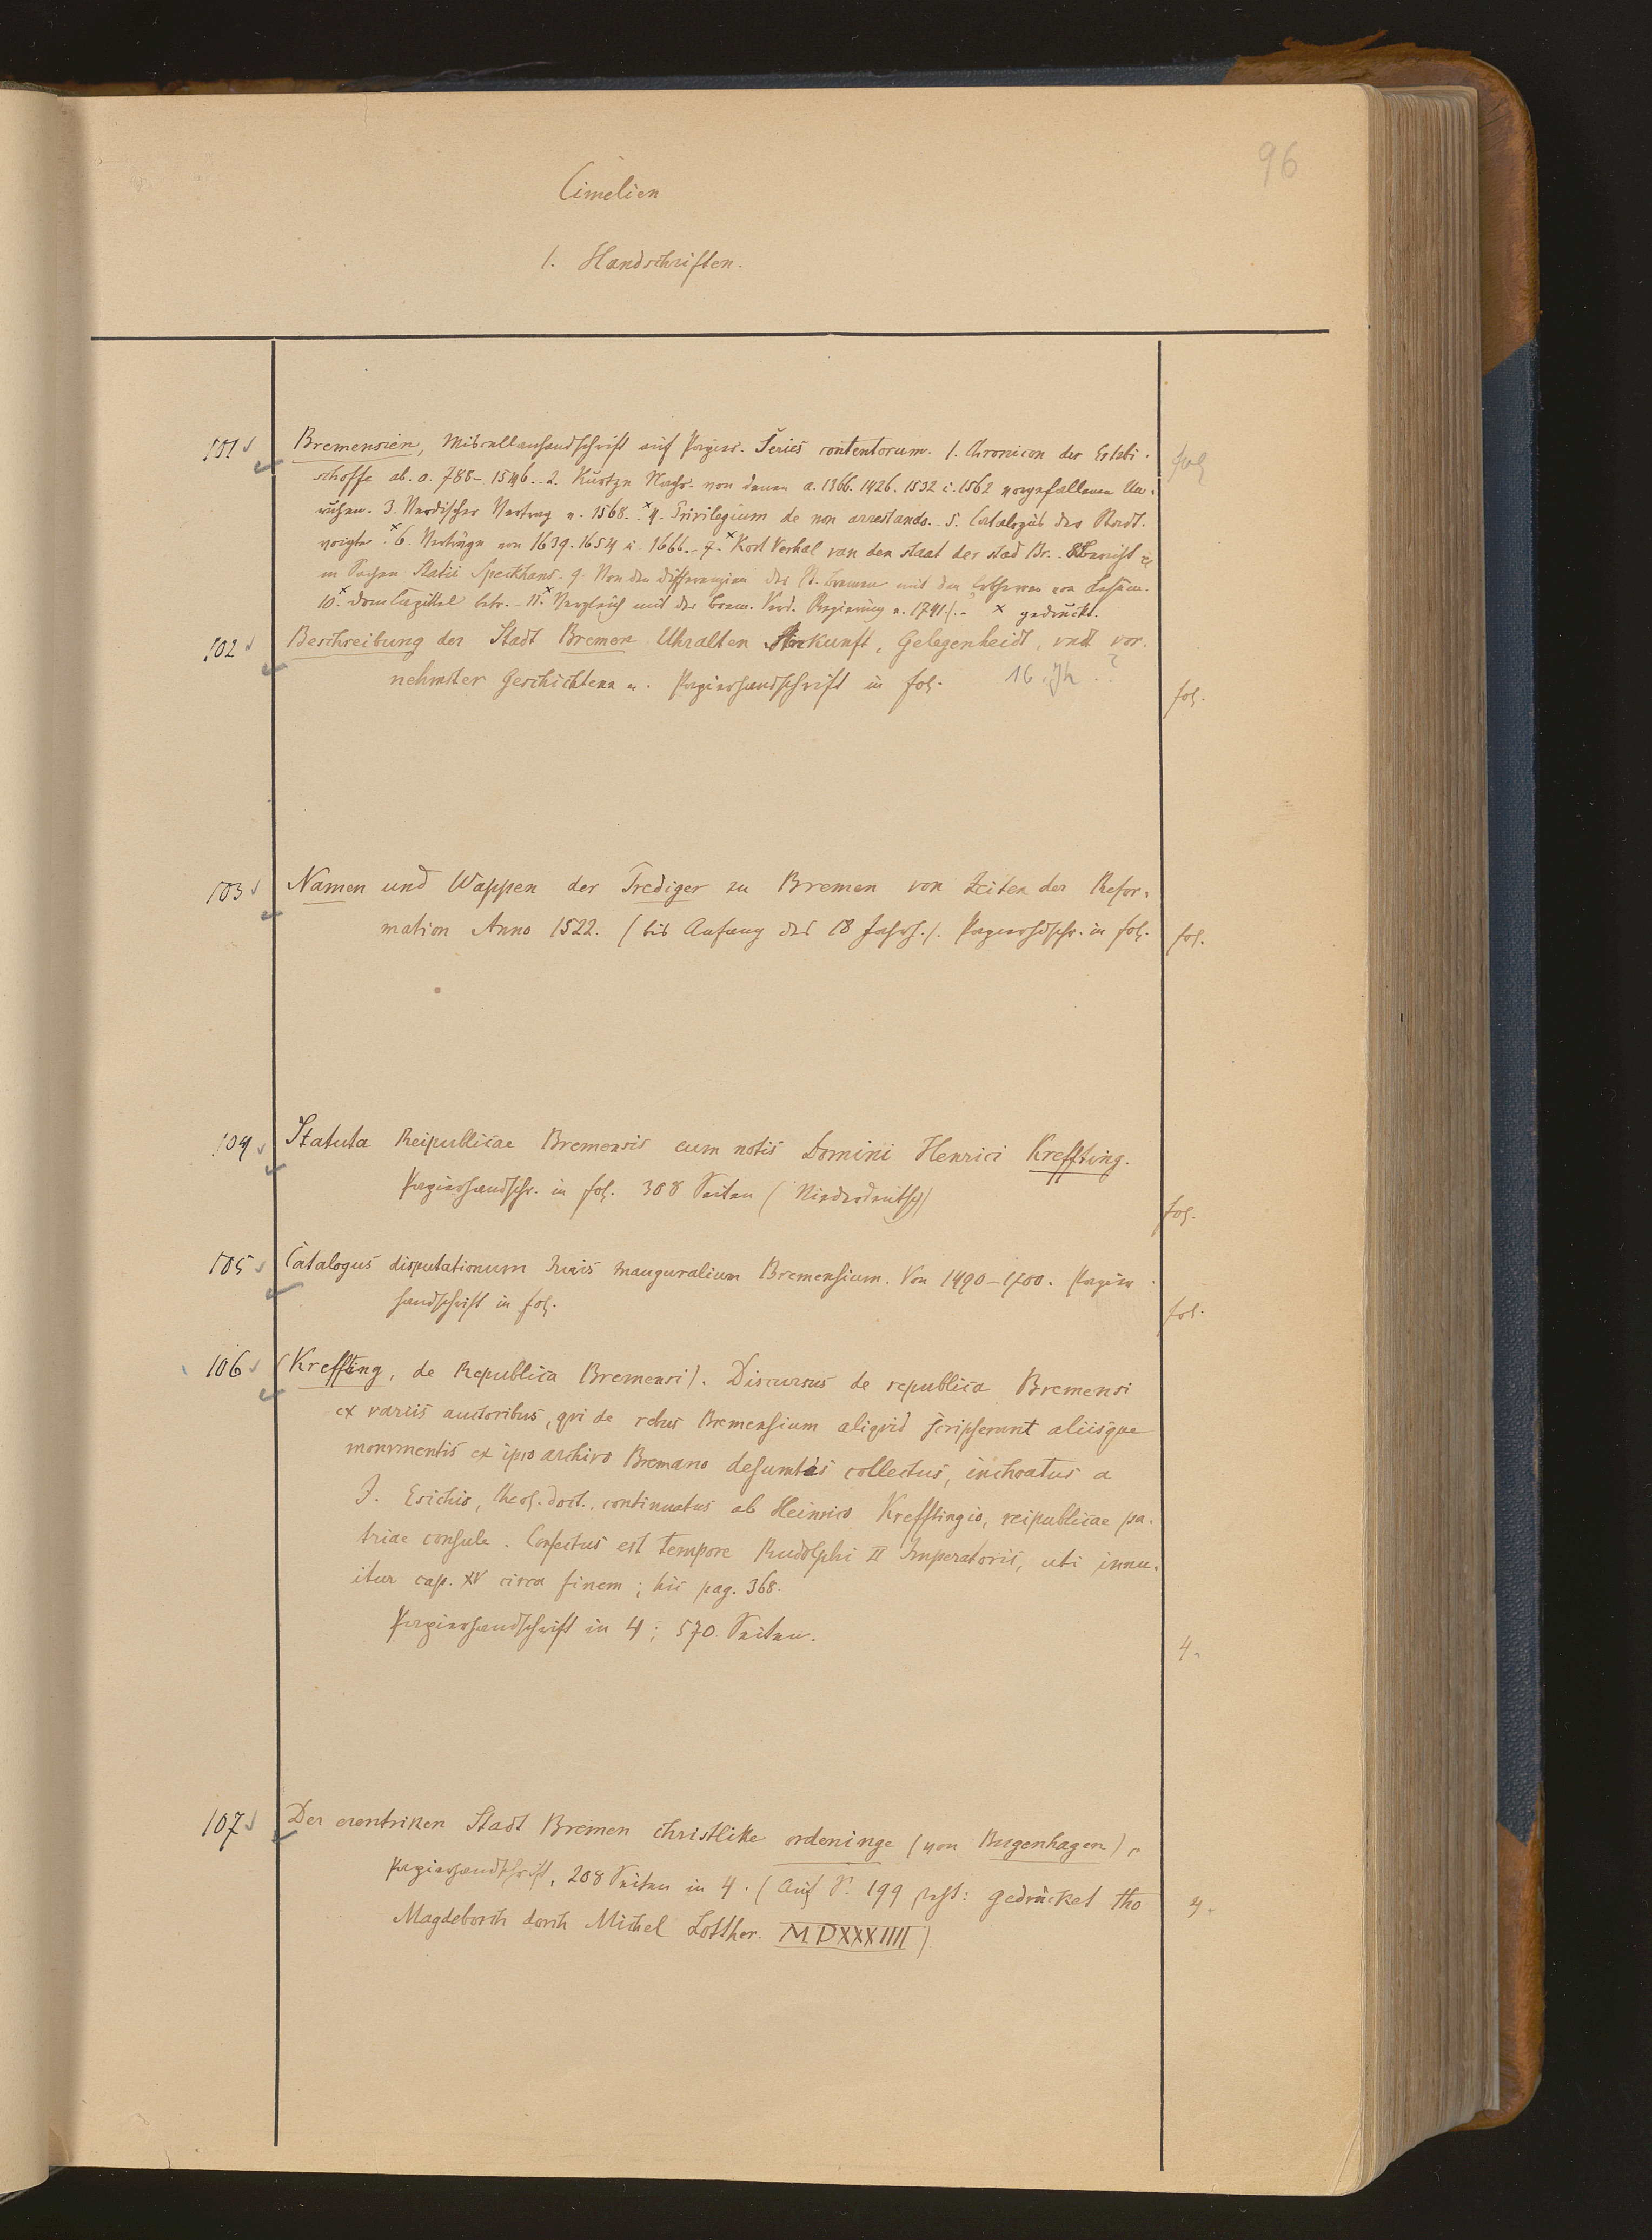 96
Cimelien
1. Handschriften.
101 Bremensien, Miscellanhandschrift auf Papier. Series contentorum. 1. Chronicon der Ertzbi- fol
schoffe ab. a. 788-1546.. 2. Kurtze Nachr. von denen a. 1366. 1426. 1532 u. 1562 vorgefallenen Un-
ruhen. 3. Verdischer Vertrag v. 1568. x 4. Privilegium de non arrestando. 5. Catalogus der Stadt-
voigte. x 6. Verträge von 1639. 1654 u. 1666. 7. x Kort Verhal van den staat der stad Br. 8 Bericht
in Sachen Statii Speckhans. 9. Von den Differenzien der St. Bremen mit den von Lesum.
10. x Domcapittel betr. 11. x Vergleich mit der Brem. Verd. Regierung v. 1741). x gedruckt.
102 Beschreibung der Stadt Bremen Uhralten Ankunft, Gelegenheidt, vndt vor-
nehmster Geschichtenn. Papierhandschrift in fol. 16. Jh.? fol.
103 Namen und Wappen der Prediger zu Bremen von Zeiten der Refor-
mation Anno 1522. (bis Anfang des 18 Jahrh.). Papierhdschr. in fol. fol.
104 Statuta Reipublicae Bremensis cum notis Domini Henrici Kreffting.
Papierhandschr. in fol. 308 Seiten (Niederdeutsch) fol.
105 Catalogus disputationum Iuris inauguralium Bremensium. Von 1490-1700. Papier-
handschrift in fol. fol.
106 (Kreffting, de Republica Bremensi). Discursus de republica Bremensi
ex variis auctoribus, qvi de rebus Bremensium aliqvid scripserunt aliisque
monvmentis ex ipso archivo Bremano desumtis collectus, inchoatus a
J. Esichio, theol. doct., continuatus ab Heinrico Krefftingio, reipublicae pa-
triae consule. Confectus est tempore Rudolphi II Imperatoris, uti innu-
itur cap. XV circa finem; hic pag. 368.
Papierhandschrift in 4; 570 Seiten. 4.
107 Der erentriken Stadt Bremen christlike ordeninge (von Bugenhagen),
Papierhandschrift, 208 Seiten in 4. (Auf S. 199 steht: gedrücket tho 4.
Magdeborch dorch Michel Lotther. MDXXXIIII)